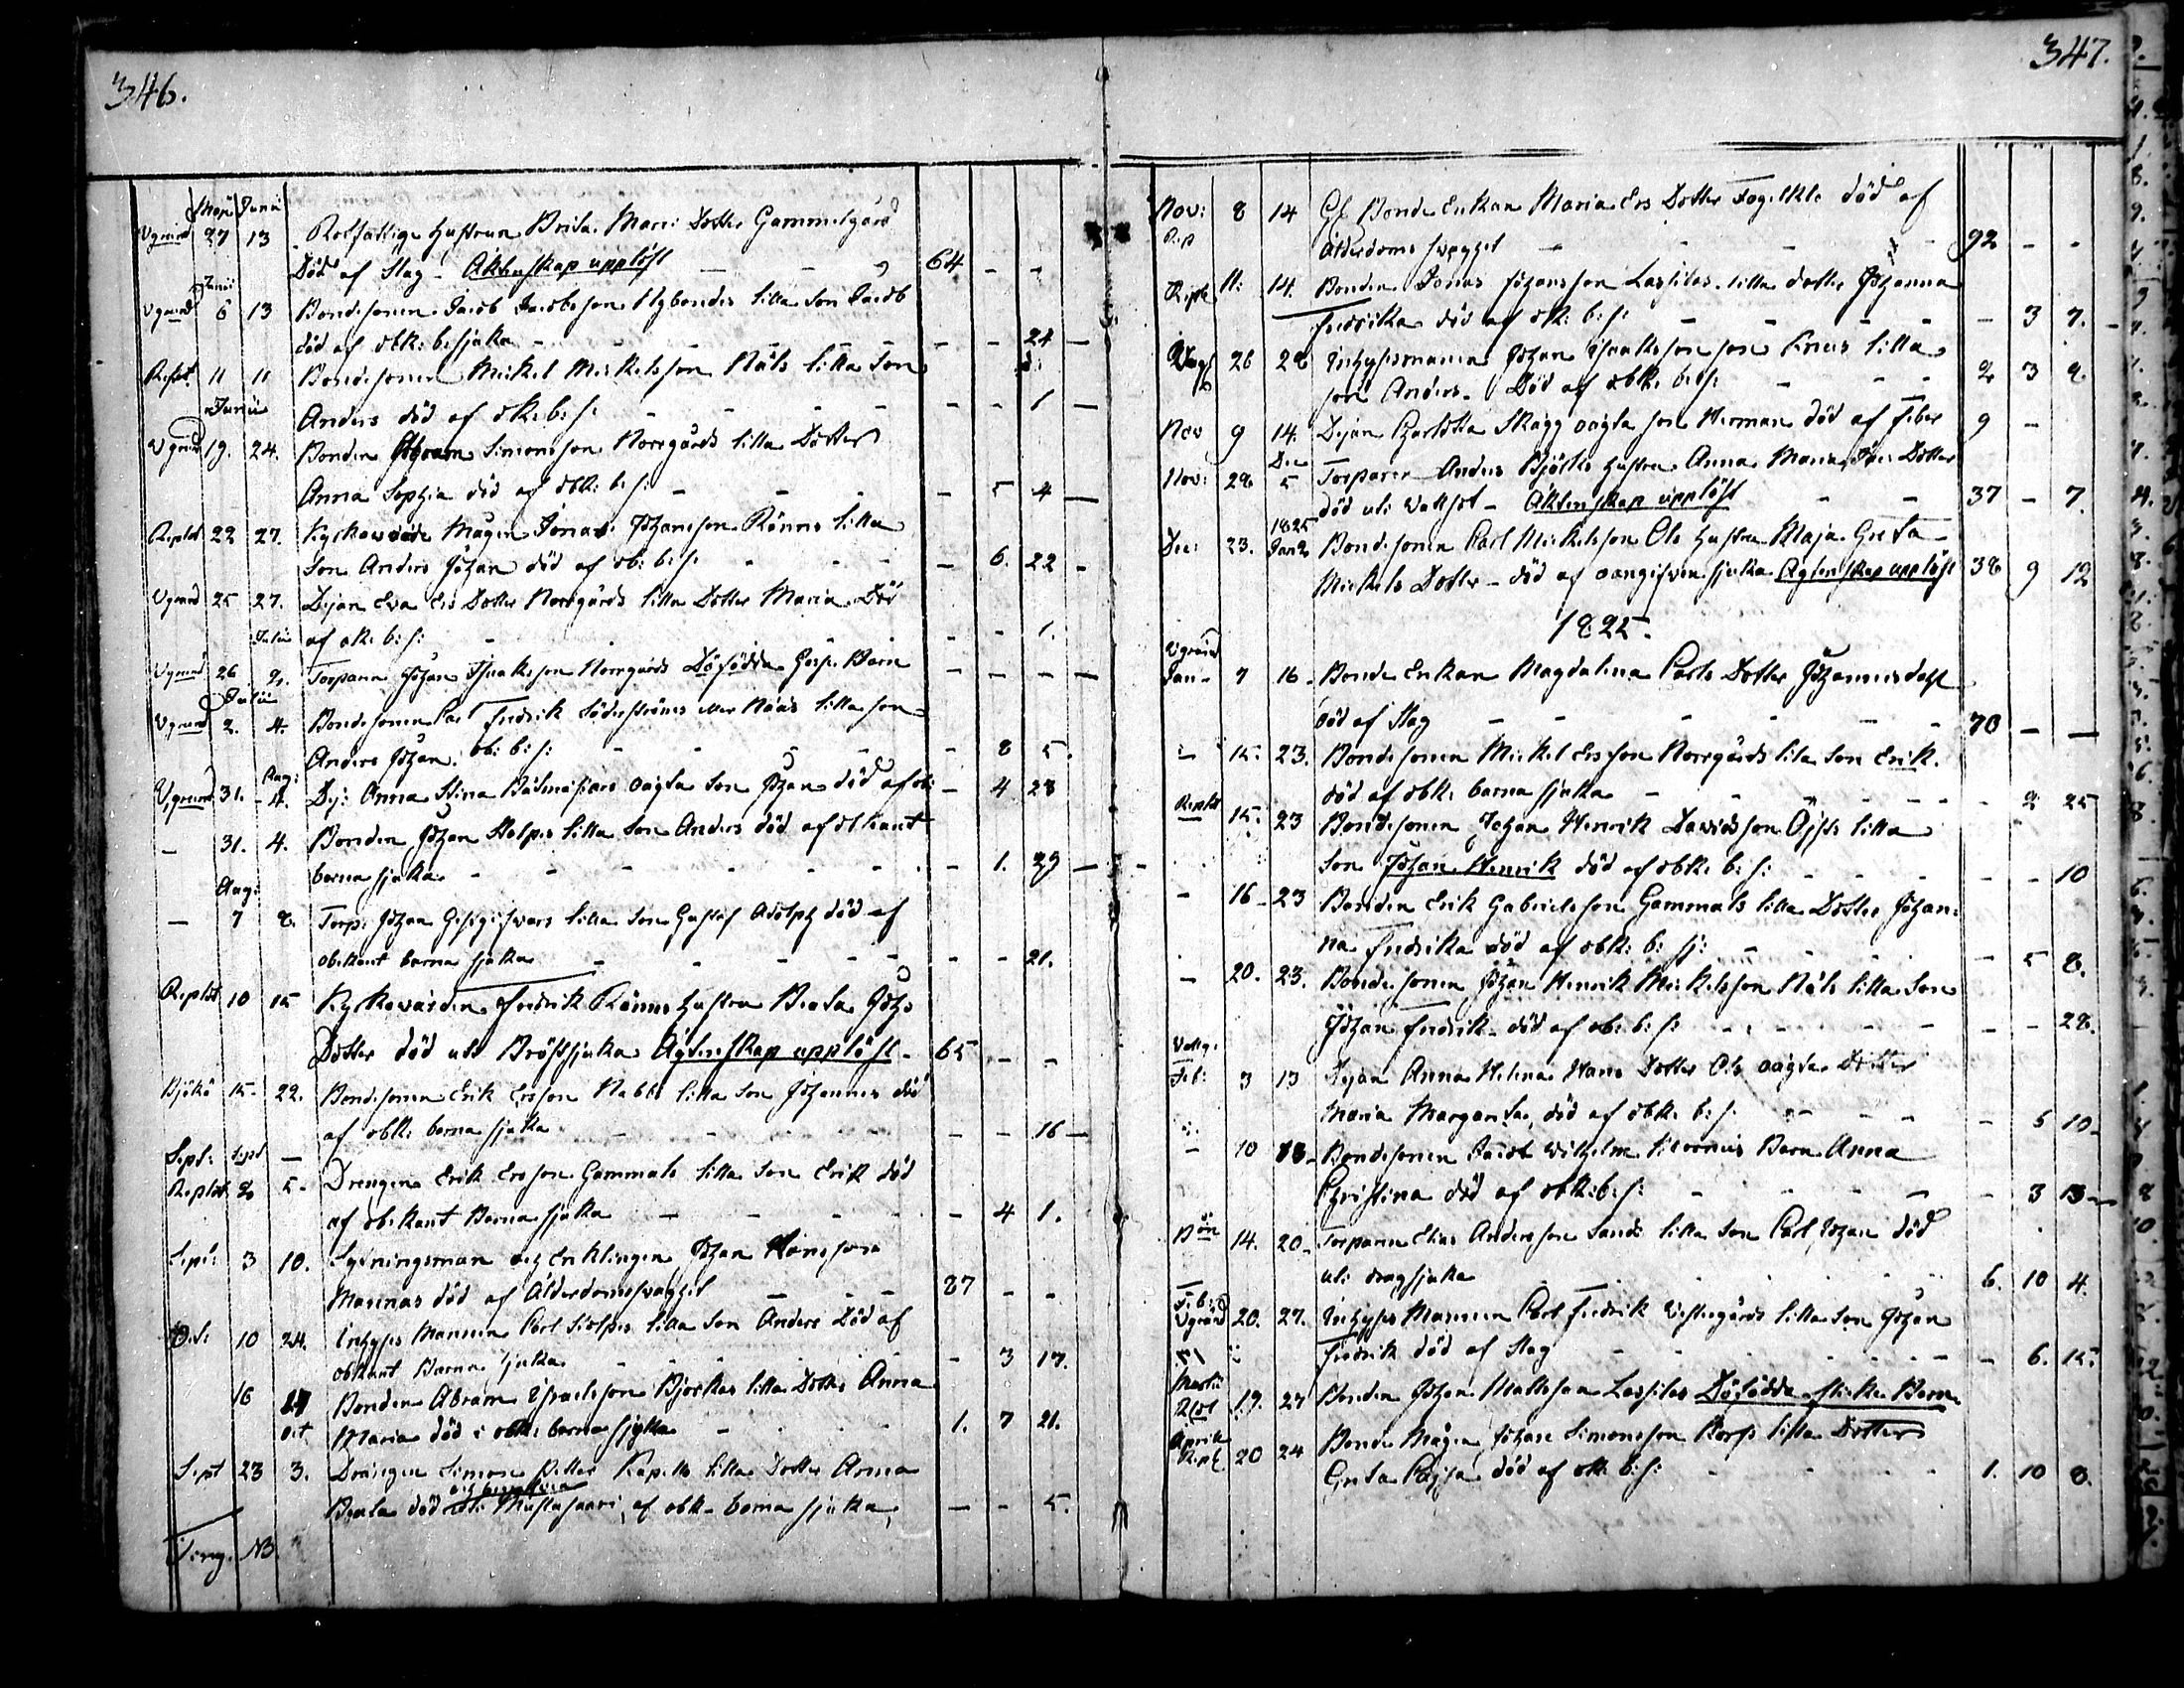 346.
Maji Junii
Vgrund 27 13 Rotfattige Hustrun Brita Marie Dotter Gammelgård
Död af Slag - Äktenskap upplöst - - 64 - -
Junii
Vgrund 6 13 Bondesonen Jacob Jacobsson Nybondes lilla Son Jacob
död af obk: b:sjuka - - - - - 24 -
Replot 11 11 Bondesonen Mickel Mickelsson Näls lilla Son
Junii
Anders död af ok: b: s: - - - - - 1 -
Vgrund 19. 24. Bonden Abram Simonsson Norrgårds lilla Dotter
Anna Sophia död af obk: b: s: - - - - 5 4 -
Replot 22 27. Kyrkovärde Mågen Jonas Johansson Rönns lilla
Son Anders Johan död af ob: b: s: - - - 6. 22 -
Vgrund 25 27. Pigan Eva Ers Dotter Norrgårds lilla Dotter Maria Död
Julii af ok: b: s: - - - 1.
Vgrund 26 2. Torparen Johan Isaksson Norrgårds Döfödda Goss Barn - - - -
Julii
Vgrund 2. 4. Bondesonen Carl Fredrik Söderströms lilla son
Anders Johan ob: b: s: - - - - 8 5.
Aug:
Vgrund 31. 4. Pig: Anna Stina oägta Son Johan död af ob: - 4 23
- 31. 4. Bonden Johan Stolpes lilla Son Anders död af obkant
barnasjuka - - - - 1. 29 -
Aug:
- 7 8. Torp: Johan Gästgifvars lilla Son Gustaf Adolph död af
obekant barna sjuka - - - - - 21.
Replot 10 15 Kyrkovärden Fredrik Rönns Hustru Beata Johs
Dotter död uti Bröstsjuka Ägtenskap upplöst - 65 - -
Björkö 15- 22. Bondesonen Erik Ersson Nabbs lilla Son Johannes död
af obk: barna sjuka - - - - 16 -
Sept: Sept -
Replot 2 5. Drengen Erik Ersson Gammals lilla Son Erik död
af obekant Barna sjuka - - - - 4 1.
Sept: 3 10. Sytningsman och Enklingen Johan Hansson
Masenas död af Ålderdomssvaghet - - - 87 - -
10 24. Inhyses Mannen Carl Stolpes lilla Son Anders Död af
obkant Barna sjuka - - - 3 17.
16 Bonden Abram Israelsson Björkas lilla Dotter Anna
oct. Maria död i obk: barna sjuka - - 1. 7 21.
Sept 23 3. Drängen Simon Petter Kapells lilla Dotter Anna
och begrafven
Beata död uti Mustasaari af obk- barna sjuka, - - 5.
NB

347.
Nov: 8 14 Gl. Bonde Enkan Maria Ers Dotter död af
Rep ålderdoms svaghet - - - - 92 - -
Replt 11: 14. Bonden Jonas Johansson Lassilas lilla dotter Johanna
Fredrika död af ok: b: s: - - - - - 3 7. -
26 28 Inhysesmannen Johan Isaksson lilla
son Anders Död af obk: b: s: - - - 2 3 2.
Nov 9 14. Pigan Charlotta Skagg oägta son Herman död af feber 9 -
Dec
Nov: 28 5 Torparen Anders Björks Hustru Anna Maria Dotter
död uti Vattsot - Äktenskap upplöst - - 37 - 7.
1825
Dec: 23. Jan 2 Bondesonen Carl Mickelsson Ols Hustru Maja Greta
Mickels Dotter - död af oangifven sjuka Ägtenskap upplöst 38 9 12
1825.
Vgrund
Jan- 7 16- Bonde Enkan Magdalena Carls Dotter Johannisdahl
död af Slag - - - - - 70 - -
- 15. 23. Bondesonen Mickel Ersson Norrgårds lilla Son Erik
död af obk: barna sjuka - - - - - 2 25
Replot 15: 23 Bondesonen Johan Henrik Davidsson lilla
Son Johan Henrik död af obk: b: s: - - - - 10
- 16- 23 Bonden Erik Gabrielsson Gammals lilla Dotter Johan:
na Fredrika död af obk: b: sj: - - - - 5 8.
- 20. 23. Bondesonen Johan Henrik Mickelsson Näls lilla Son
Johan Fredrik död af ob: b: s: - - - - - 28.
Feb: 3 13 Pigan Anna Helena Hans Dotter Ols oägta Dotter
Maria Margareta, död af obk: b: s: - - - - 5 10-
- 10 13- Bondesonen Jacob Wilhelm Barn Anna
Christina död af obk: b: s: - - - - - 3 13 -
14. 20- Torparen Elias Andersson Sands lilla Son Carl Johan död
uti dragsjuka - - - - 6. 10 4.
Feb:
Vgrund 20. 27. Inhyses Mannen Carl Fredrik Vestergårds lilla Son Johan
Fredrik död af Slag - - - - - 6. 15.
Martii
19. 27 Bonden Johan Mattsson Lassilas Döfödda flicke Barn
Aprilis
Repl. 20 24 Bonde Mågen Johan Simonsson Borgs lilla Dotter
Greta Cajsa död af obk: b: s: - - - - 1. 10 8.